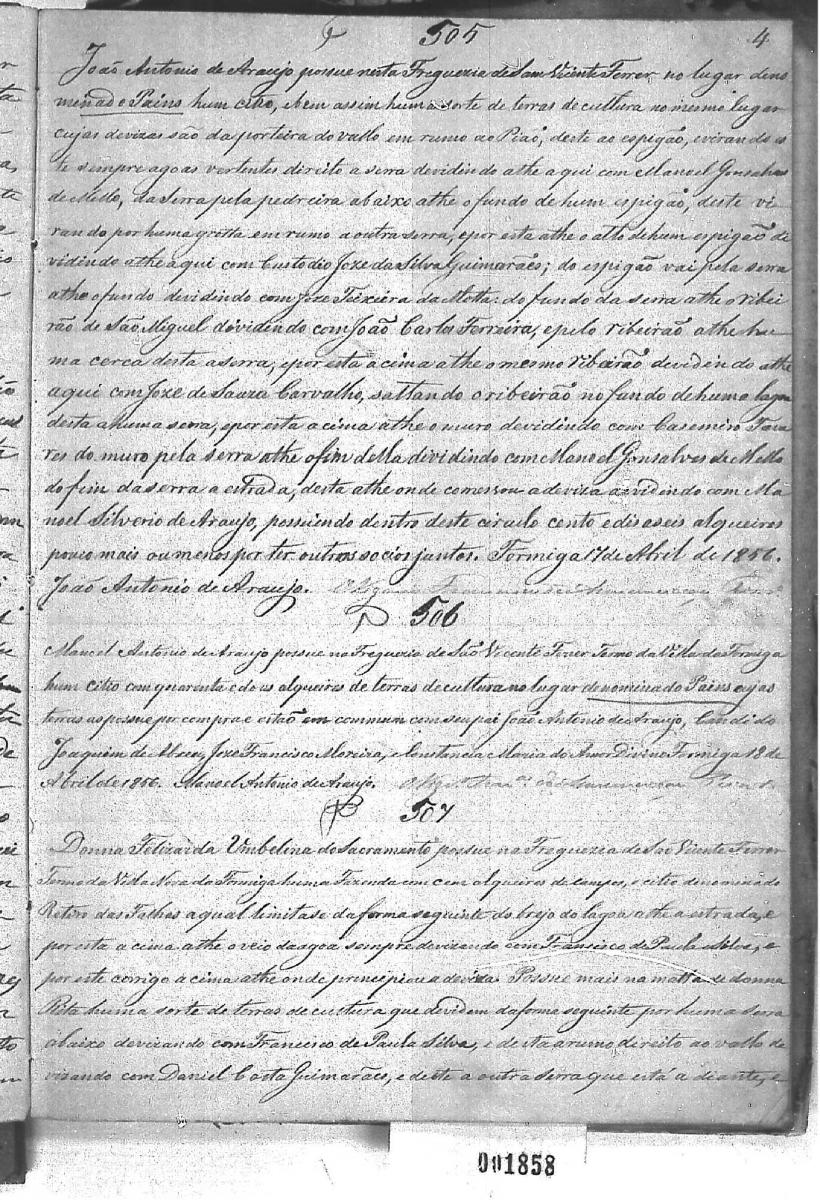 505
4
João Antonio de Araujo possue nesta Freguezia de Sam Vicente Ferrer no lugar deno
menado Pains hum citio, e bem assim huma sorte de terras de cultura no mesmo lugar
cujas devizas são da porteira do vallo em rumo ao Pião, deste ao espigão, e virando es
te sempre agoas vertentes direito a serra devidindo athe aqui com Manoel Gonsalves
de Mello, da serra pela pedreira abaixo athe o fundo de hum espigão, deste vi
rando por huma grotta em rumo a outra serra, e por esta athe o alto de hum espigão de
vidindo athe aqui com Custodio Joze da Silva Guimarães; do espigão vai pela serra
athe o fundo devidindo com Joze Teixeira da Motta: do fundo da serra athe o ribei
rão de São Miguel devidindo com João Carlos Ferreira, e pelo ribeirão athe hu
ma cerca desta a serra, e por esta a cima athe o mesmo ribeirão devidindo athe
aqui com Joze de Souza Carvalho, saltando o ribeirão no fundo de huma lagoa
desta a huma serra, e por esta a cima athe o muro devidindo com Casemiro Tava
res do muro pela serra athe o fim della dividindo com Manoel Gonsalves de Mello
do fim da serra a estrada, desta athe onde comessou a deviza devidindo com Ma
noel Silverio de Araujo, possuindo dentro deste circulo cento e diseseis alqueires
pouco mais ou menos por ter outros socios juntos. Formiga 17 de Abril de 1856.
João Antonio de Araujo. O Vigario
506
Manoel Antonio de Araujo possue na Freguezia de São Vicente Ferrer Termo da Villa da Formiga
hum citio com quarenta e dous alqueires de terras de cultura no lugar denominado Pains cujas
terras as possue por compra e estão em commum com seu pai João Antonio de Araujo, Candido
Joaquim de Abreu, Joze Francisco Moreira, e Constancia Maria do Amor Divino Formiga 18 de
Abril de 1856. Manoel Antonio de Araujo.
507
Donna Felizarda Umbelina do Sacramento possue na Freguezia de São Vicente Ferrer
Termo da Villa Nova da Formiga huma Fazenda com cem alqueires de campos, e citio denominado
Retiro das Folhas a qual limitase da forma seguinte do brejo da lagoa athe a estrada, e
por esta a cima athe o veio da agoa sempre devizando com Francisco de Paula Silva, e
por este corrigo a cima athe onde principiou a deviza. Possue mais na matta de donna
Rita huma sorte de terras de cultura que devidem da forma seguinte por huma serra
abaixo devizando com Francisco de Paula Silva, e desta a rumo direito ao vallo de
vizando com Daniel Costa Guimarães, e deste a outra serra que está a diante, e
001858